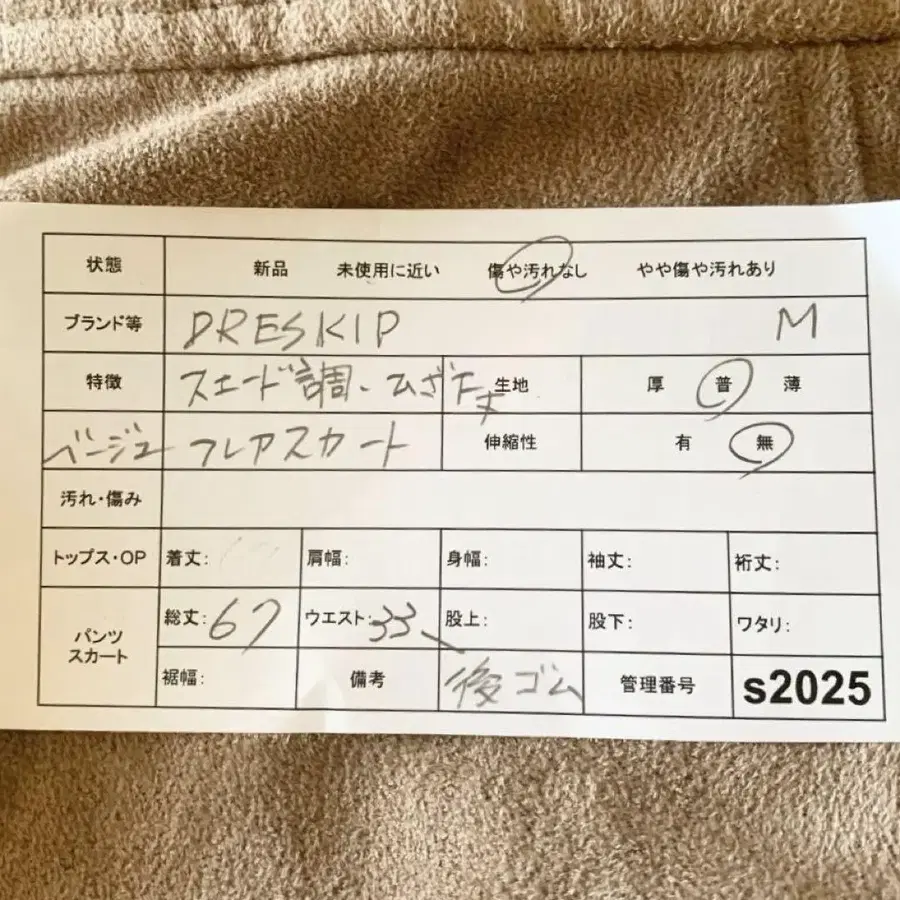 状態 新品 未使用に近い 傷や汚れなし やや傷や汚れあり
ブランド等 DRESKIP M
特徴 スエード調、ひざ下丈 生地 厚 普 薄
ベージュ フレアスカート 伸縮性 有 無
汚れ・傷み
トップス・OP 着丈: 肩幅: 身幅: 袖丈: 裄丈:
パンツ スカート 総丈: 67 ウエスト: 33 股上: 股下: ワタリ:
裾幅: 備考 後ゴム 管理番号 s2025